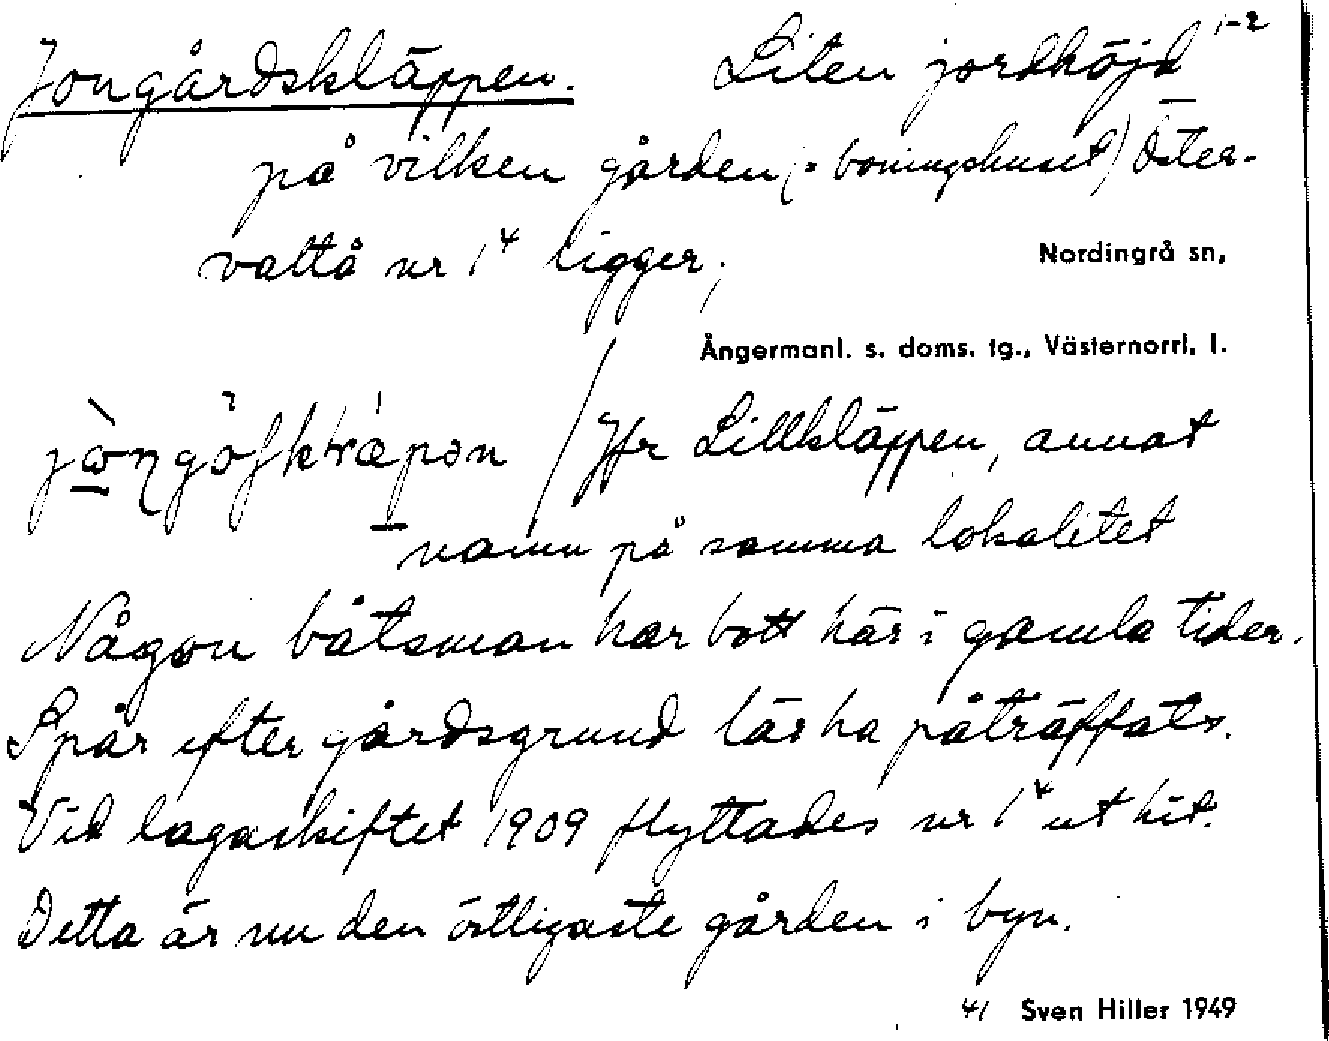 Jongårdskläppen. Liten jordhöjd 1-2
på vilken gården (= boningshuset) Öster-
vattå nr 1⁴ ligger;
Nordingrå sn,
Ångermanl. s. doms. tg., Västernorrl. l.
/ Jfr Lillkläppen, annat
namn på samma lokalitet
Någon båtsman har bott här i gamla tider.
Spår efter gårdsgrund lär ha påträffats.
Vid lagaskiftet 1909 flyttades nr 1⁴ ut hit.
Detta är nu den östligaste gården i byn.
41 Sven Hiller 1949